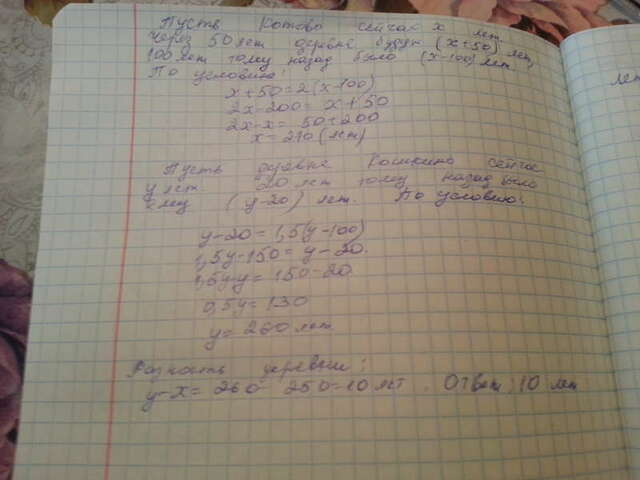 Пусть Котово сейчас x лет.
Через 50 лет деревне будет (x+50) лет,
100 лет тому назад было (x-100) лет
По условию:
x+50=2(x-100)
2x-200= x+50
2x-x= 50+200
x=250(лет)
Пусть деревне Кошкино сейчас
y лет 20 лет тому назад было
ему (y-20) лет. По условию:
y-20=1,5(y-100)
1,5y-150=y-20.
1,5y-y=150-20
0,5y=130
y=260 лет
Разность деревень:
y-x=260 250=10 лет. Ответ: 10 лет
лет